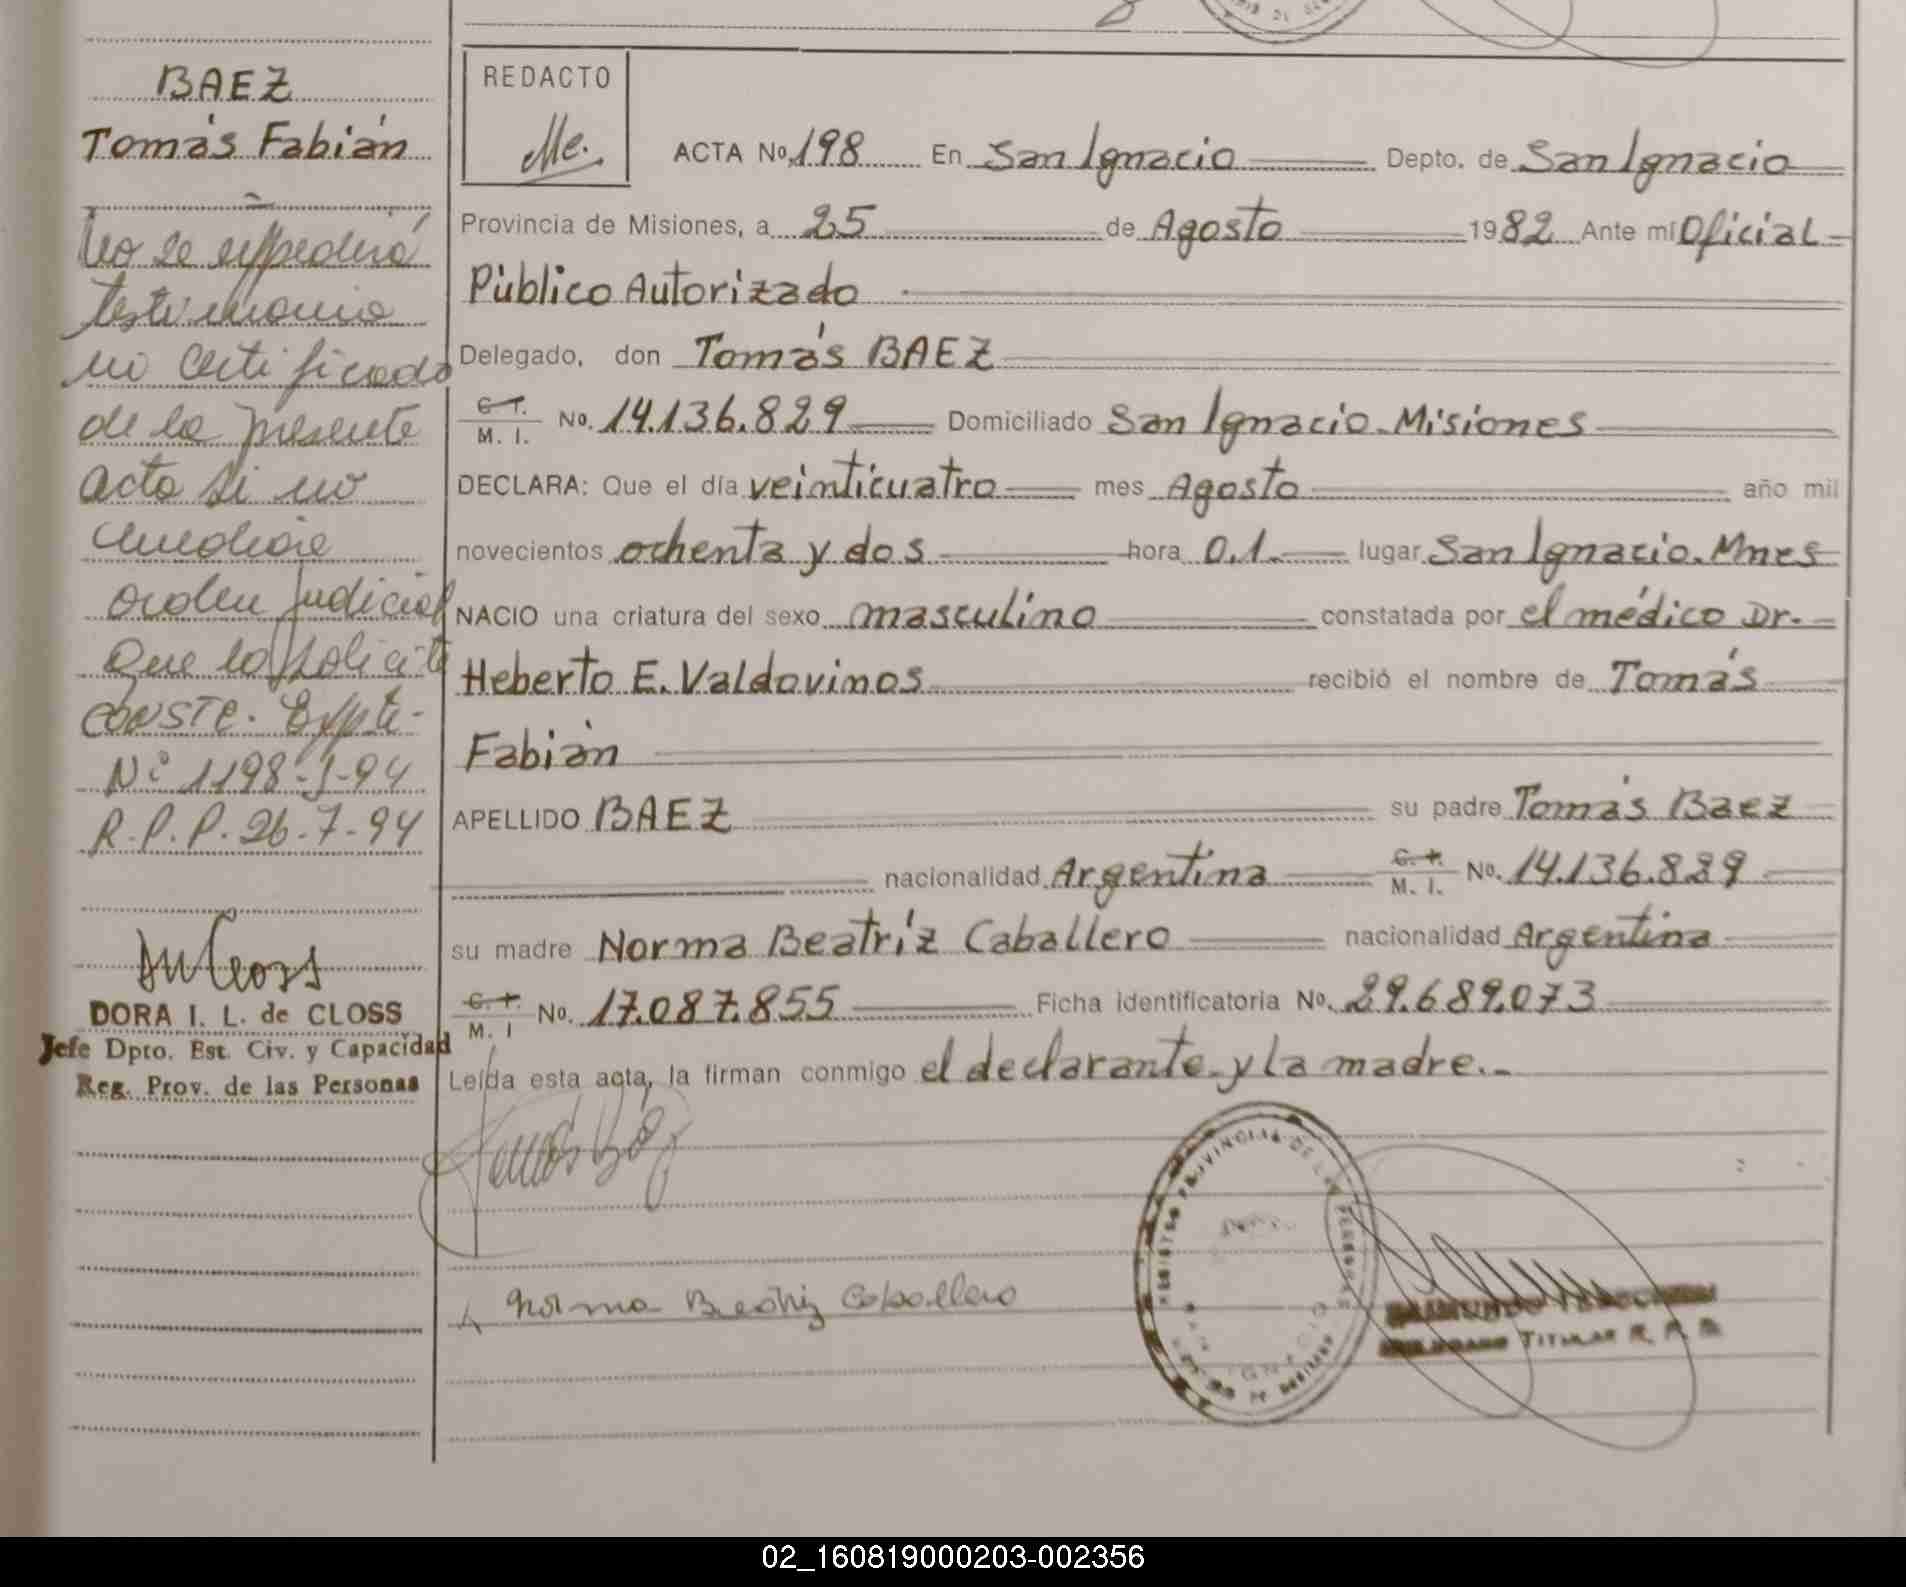 BAEZ
Tomás Fabián
No se expedirá
testimonio
ni certificado
de la presente
acta si no
mediare
orden judicial
que lo solicite
CONSTE. Expte.
Nº 1198-J-94
R.P.P. 26-7-94
DORA I. L. de CLOSS
Jefe Dpto. Est. Civ. y Capacidad
Reg. Prov. de las Personas
REDACTO
ACTA No. 198 En San Ignacio Depto. de San Ignacio
Provincia de Misiones, a 25 de Agosto 1982 Ante mí Oficial
Público Autorizado
Delegado, don Tomás BAEZ
C. I. M. I. No. 14.136.829 Domiciliado San Ignacio-Misiones
DECLARA: Que el día veinticuatro mes Agosto año mil
novecientos ochenta y dos hora 0.1. lugar San Ignacio. Mnes
NACIO una criatura del sexo masculino constatada por el médico Dr.
Heberto E. Valdovinos recibió el nombre de Tomás
Fabián
APELLIDO BAEZ su padre Tomás Baez
nacionalidad Argentina C. I. M. I. No. 14.136.829
su madre Norma Beatríz Caballero nacionalidad Argentina
C. I. M. I No. 17.087.855 Ficha identificatoria No. 29.689.073
Leída esta acta, la firman conmigo el declarante y la madre.-
Tomás Báez
REGISTRO PROVINCIAL DE LAS PERSONAS
SAN IGNACIO
Norma Beatriz Caballero
TITULAR R. P. P.
02_160819000203-002356